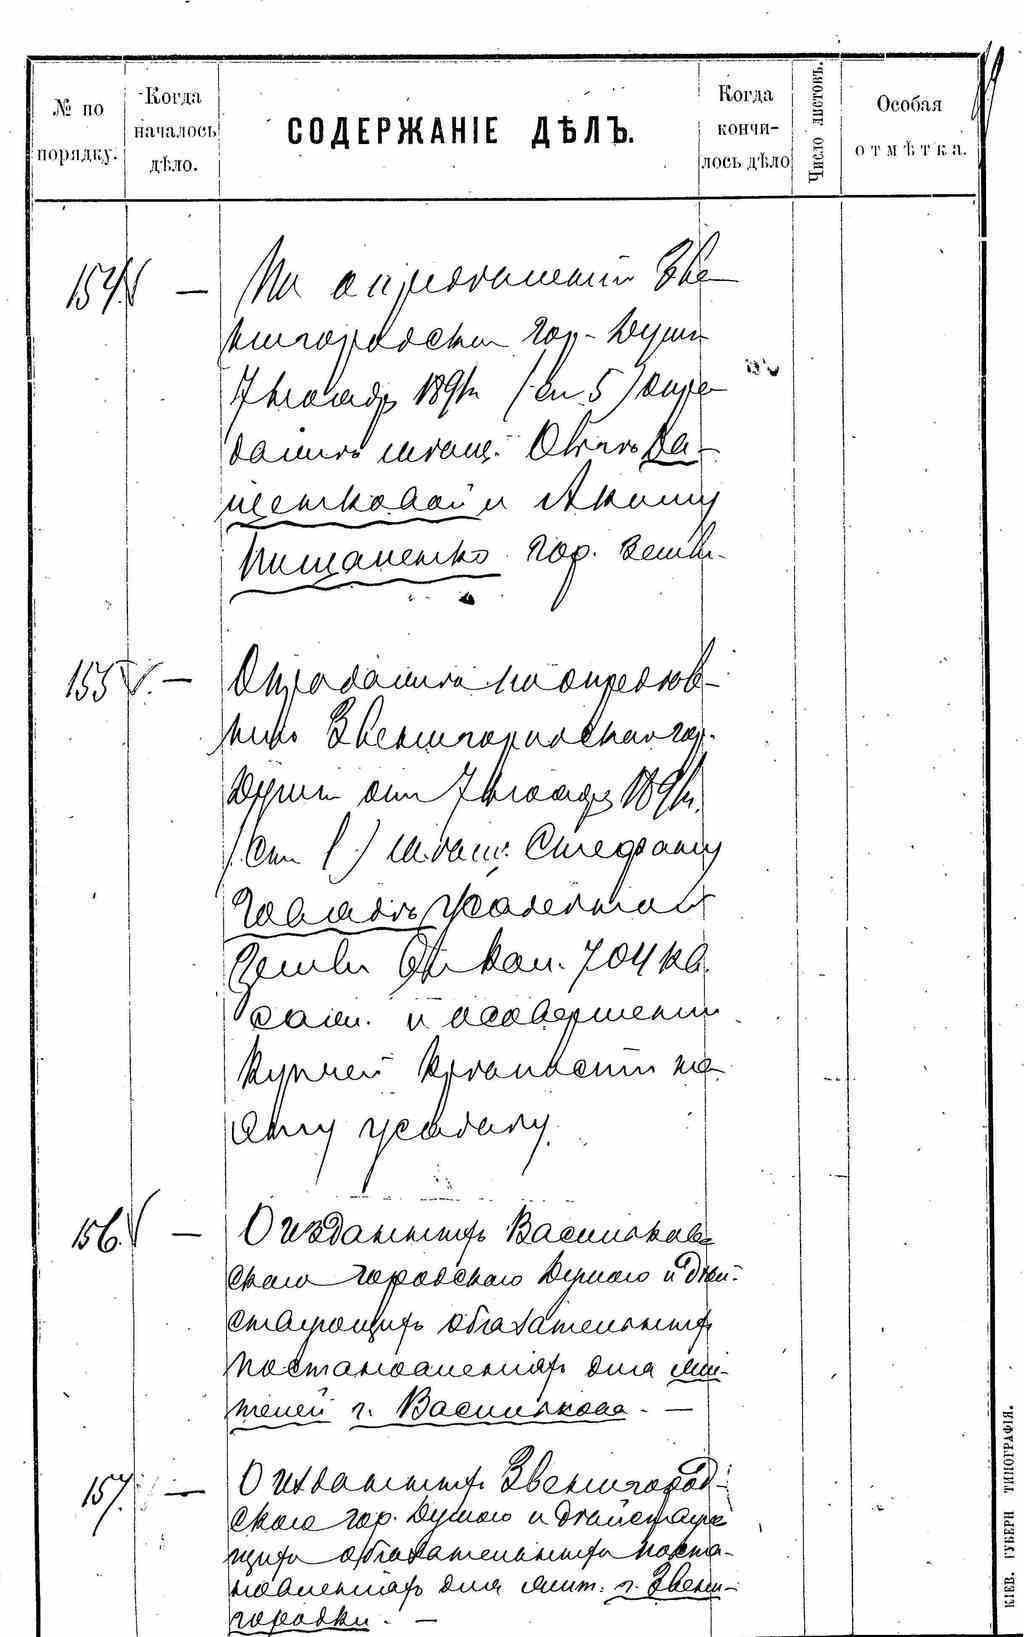 № по порядку.
Когда началось дѣло.
СОДЕРЖАНІЕ ДѢЛЪ.
Когда кончи-лось дѣло
Число листовъ.
Особая отмѣтка.
154. — По опредѣленію Зве-
нигородской Гор. Думы
7 ноября 1891 г. (ст. 5)
мѣщ. Да-
щенковой и Акиму
Пищаленко гор. земли.
155 — О продажѣ по опредѣле-
нію Звенигородской гор.
Думы отъ 7 ноября 1891 г.
(ст. ) мѣщ. Стефану
усадебной
земли въ кол. 704 кв.
саж. и о совершеніи
купчей крѣпости на
эту усадьбу.
156. — О изданныхъ Васильков-
скою городскою Думою и дѣй-
ствующихъ обязательныхъ
постановленіяхъ для жи-
телей г. Василькова. —
157. — О изданныхъ Звенигород-
скою гор. Думою и дѣйствую-
щихъ обязательныхъ поста-
новленіяхъ для жит. г. Звени-
городки. —
КІЕВ. ГУБЕРН ТИПОГРАФІЯ.